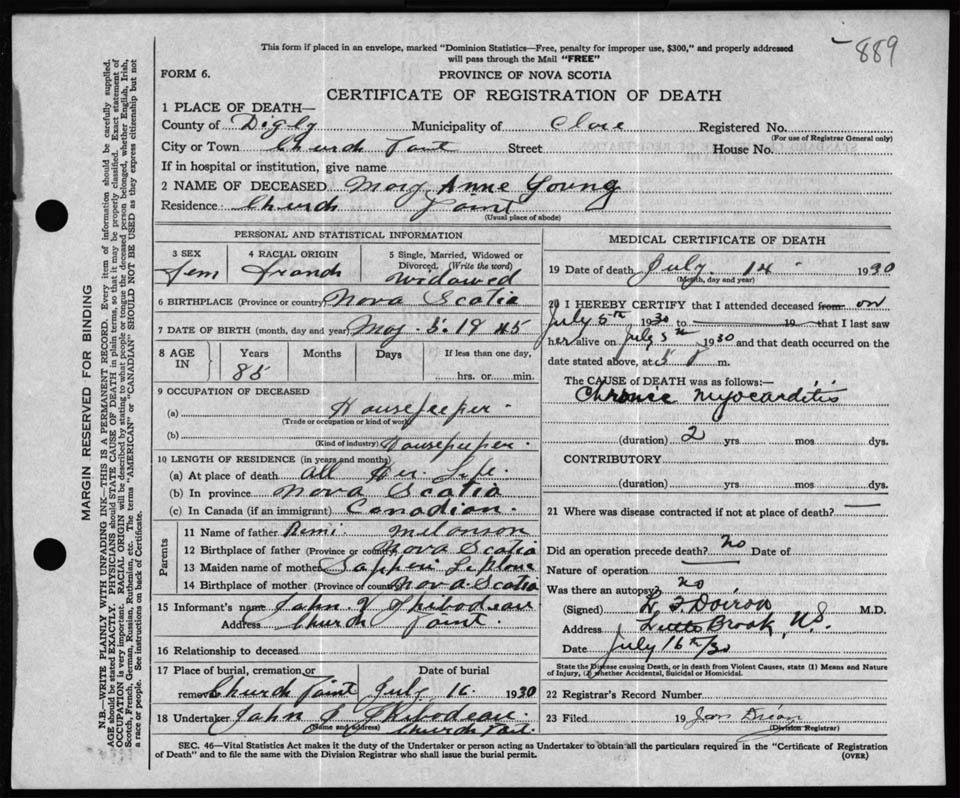 889
This form if placed in an envelope, marked "Dominion Statistics—Free, penalty for improper use, $300," and properly addressed
will pass through the Mail "FREE"
FORM 6.
PROVINCE OF NOVA SCOTIA
CERTIFICATE OF REGISTRATION OF DEATH
1 PLACE OF DEATH—
County of Digby Municipality of Clare Registered No.
(For use of Registrar General only)
City or Town Church Point Street House No.
If in hospital or institution, give name
2 NAME OF DECEASED Mary Anne Young
Residence Church Point
(Usual place of abode)
PERSONAL AND STATISTICAL INFORMATION
3 SEX 4 RACIAL ORIGIN 5 Single, Married, Widowed or
Divorced. (Write the word)
Fem French Widowed
6 BIRTHPLACE (Province or country) Nova Scotia
7 DATE OF BIRTH (month, day and year) May. 5. 1845
8 AGE IN Years Months Days If less than one day,
85 hrs. or min.
9 OCCUPATION OF DECEASED
(a) Housekeeper
(Trade or occupation or kind of work)
(b) Housekeeper.
(Kind of industry)
10 LENGTH OF RESIDENCE (in years and months)
(a) At place of death all Her Life.
(b) In province Nova Scotia
(c) In Canada (if an immigrant) Canadian.
Parents
11 Name of father Remi. Melonson
12 Birthplace of father (Province or country) Nova Scotia
13 Maiden name of mother
14 Birthplace of mother (Province or country) Nova. Scotia
15 Informant's name John J Thibodeau
Address Church Point.
16 Relationship to deceased
17 Place of burial, cremation or Date of burial
removal Church Point July 16. 1930
18 Undertaker John J Thibodeau.
(Name and address) Church Point.
MEDICAL CERTIFICATE OF DEATH
19 Date of death July. 14 1930
(Month, day and year)
20 I HEREBY CERTIFY that I attended deceased from on
July 5th 1930 to 19 that I last saw
her alive on July 5th 1930 and that death occurred on the
date stated above, at 5 P m.
The CAUSE OF DEATH was as follows:—
Chronic Myocarditis
(duration) 2 yrs. mos. dys.
CONTRIBUTORY
(duration) yrs. mos. dys.
21 Where was disease contracted if not at place of death? —
Did an operation precede death? No Date of
Nature of operation
Was there an autopsy? no
(Signed) Doiron M.D.
Address Little Brook, N.S.
Date July 16th/30
State the Disease causing Death, or in death from Violent Causes, state (1) Means and Nature
of Injury, (2) whether Accidental, Suicidal or Homicidal.
22 Registrar's Record Number
23 Filed 19
(Division Registrar)
SEC. 46—Vital Statistics Act makes it the duty of the Undertaker or person acting as Undertaker to obtain all the particulars required in the "Certificate of Registration
of Death" and to file the same with the Division Registrar who shall issue the burial permit.
(OVER)
MARGIN RESERVED FOR BINDING
N.B.—WRITE PLAINLY WITH UNFADING INK—THIS IS A PERMANENT RECORD. Every item of information should be carefully supplied.
AGE should be stated EXACTLY. PHYSICIANS should STATE CAUSE OF DEATH in plain terms, so that it may be properly classified. Exact statement of
OCCUPATION is very important. RACIAL ORIGIN will be described by stating to what people or tongue the deceased person belonged, whether English, Irish,
Scotch, French, German, Russian, Ruthenian, etc. The terms "AMERICAN" or "CANADIAN" SHOULD NOT BE USED as they express citizenship but not
a race or people. See instructions on back of Certificate.